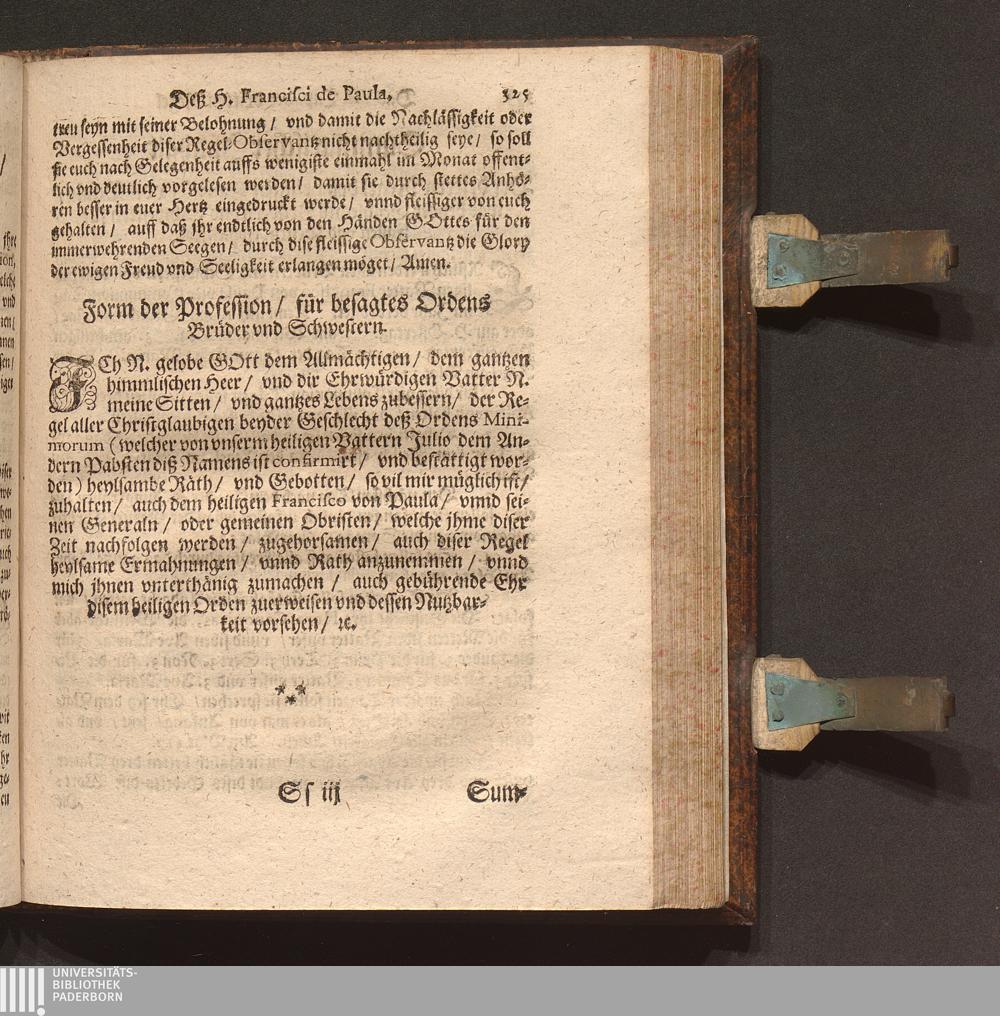 Deß H. Francisci de Paula. 325
treu seyn mit seiner Belohnung / vnd damit die Nachlässigkeit oder
Vergessenheit diser Regel-Observantz nicht nachtheilig seye / so soll
sie euch nach Gelegenheit auffs wenigiste einmahl im Monat offent-
lich vnd deutlich vorgelesen werden / damit sie durch stettes Anhö-
ren besser in euer Hertz eingedruckt werde / vnnd fleissiger von euch
gehalten / auff daß jhr endtlich von den Händen GOttes für den
immerwehrenden Seegen / durch dise fleissige Observantz die Glory
der ewigen Freud vnd Seeligkeit erlangen möget / Amen.
Form der Profession / für besagtes Ordens
Brüder vnd Schwestern.
ICh N. gelobe GOtt dem Allmächtigen / dem gantzen
himmlischen Heer / vnd dir Ehrwürdigen Vatter N.
meine Sitten / vnd gantzes Lebens zubessern / der Re-
gel aller Christglaubigen beyder Geschlecht deß Ordens Mini-
morum (welcher von vnserm heiligen Vattern Julio dem An-
dern Pabsten diß Namens ist confirmirt / vnd bestättigt wor-
den) heylsambe Räth / vnd Gebotten / so vil mir müglich ist /
zuhalten / auch dem heiligen Francisco von Paula / vnnd sei-
nen Generaln / oder gemeinen Obristen / welche jhme diser
Zeit nachfolgen werden / zugehorsamen / auch diser Regel
heylsame Ermahnungen / vnnd Rath anzunemmen / vnnd
mich jhnen vnterthänig zumachen / auch gebührende Ehr
disem heiligen Orden zuerweisen vnd dessen Nutzbar-
keit vorsehen / ꝛc.
* * *
Ss iij Sum-
UNIVERSITÄTS-
BIBLIOTHEK
PADERBORN